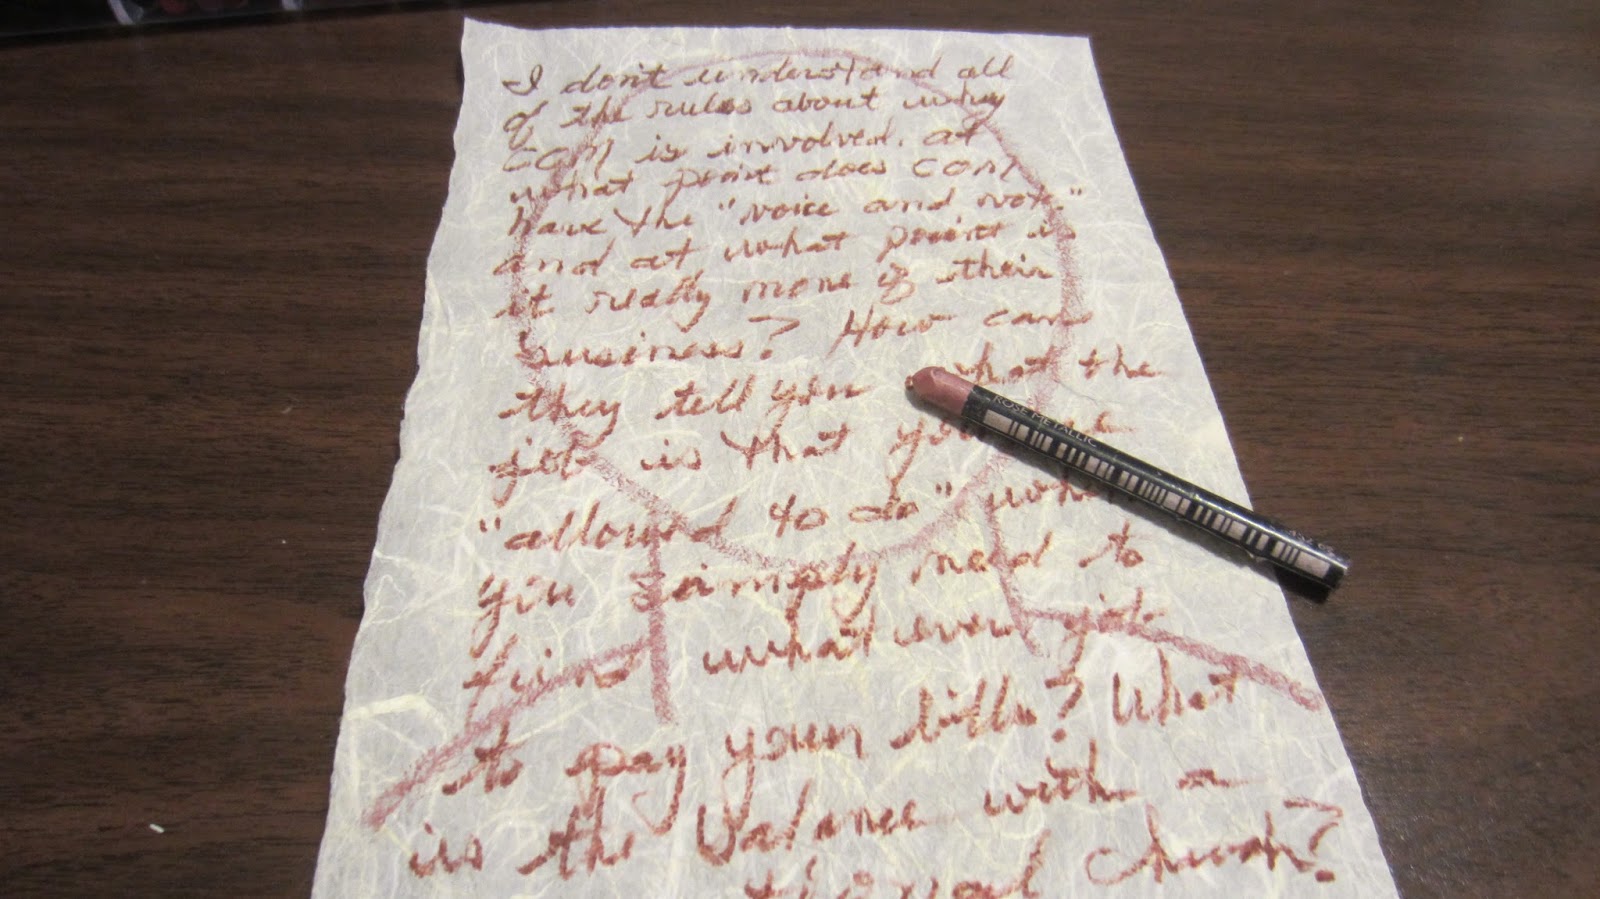 I don't understand all
of the rules about why
COM is involved. at
what point does COM
have the "voice and vote"
and at what point is
it really none of their
business? How can
they tell you what the
job is that you are
"allowed to do" when
you simply need to
find whatever job
to pay your bills? What
is the balance with a
church?
ROSE METALLIC